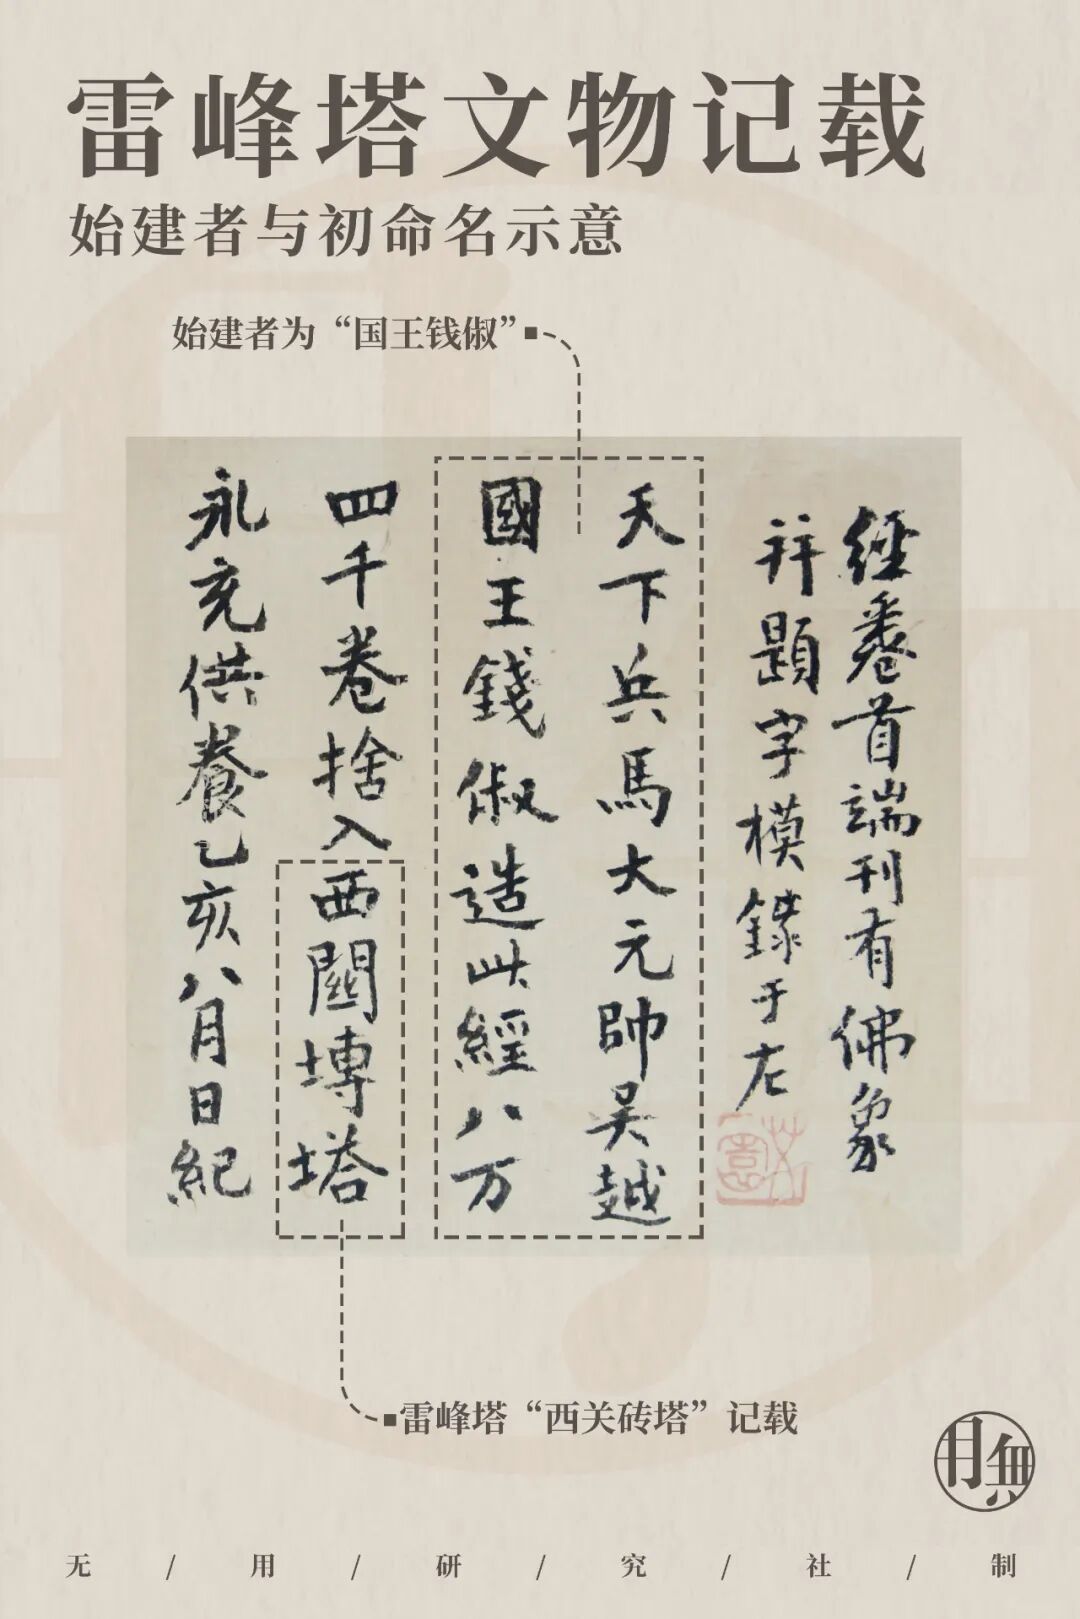 雷峰塔文物记载
始建者与初命名示意
始建者为“国王钱俶”
經卷首端刊有佛象
并題字模錄于左
天下兵馬大元帥吴越
國王錢俶造此經八万
四千卷捨入西關塼塔
永充供養乙亥八月日紀
雷峰塔“西关砖塔”记载
无/用/研/究/社/制